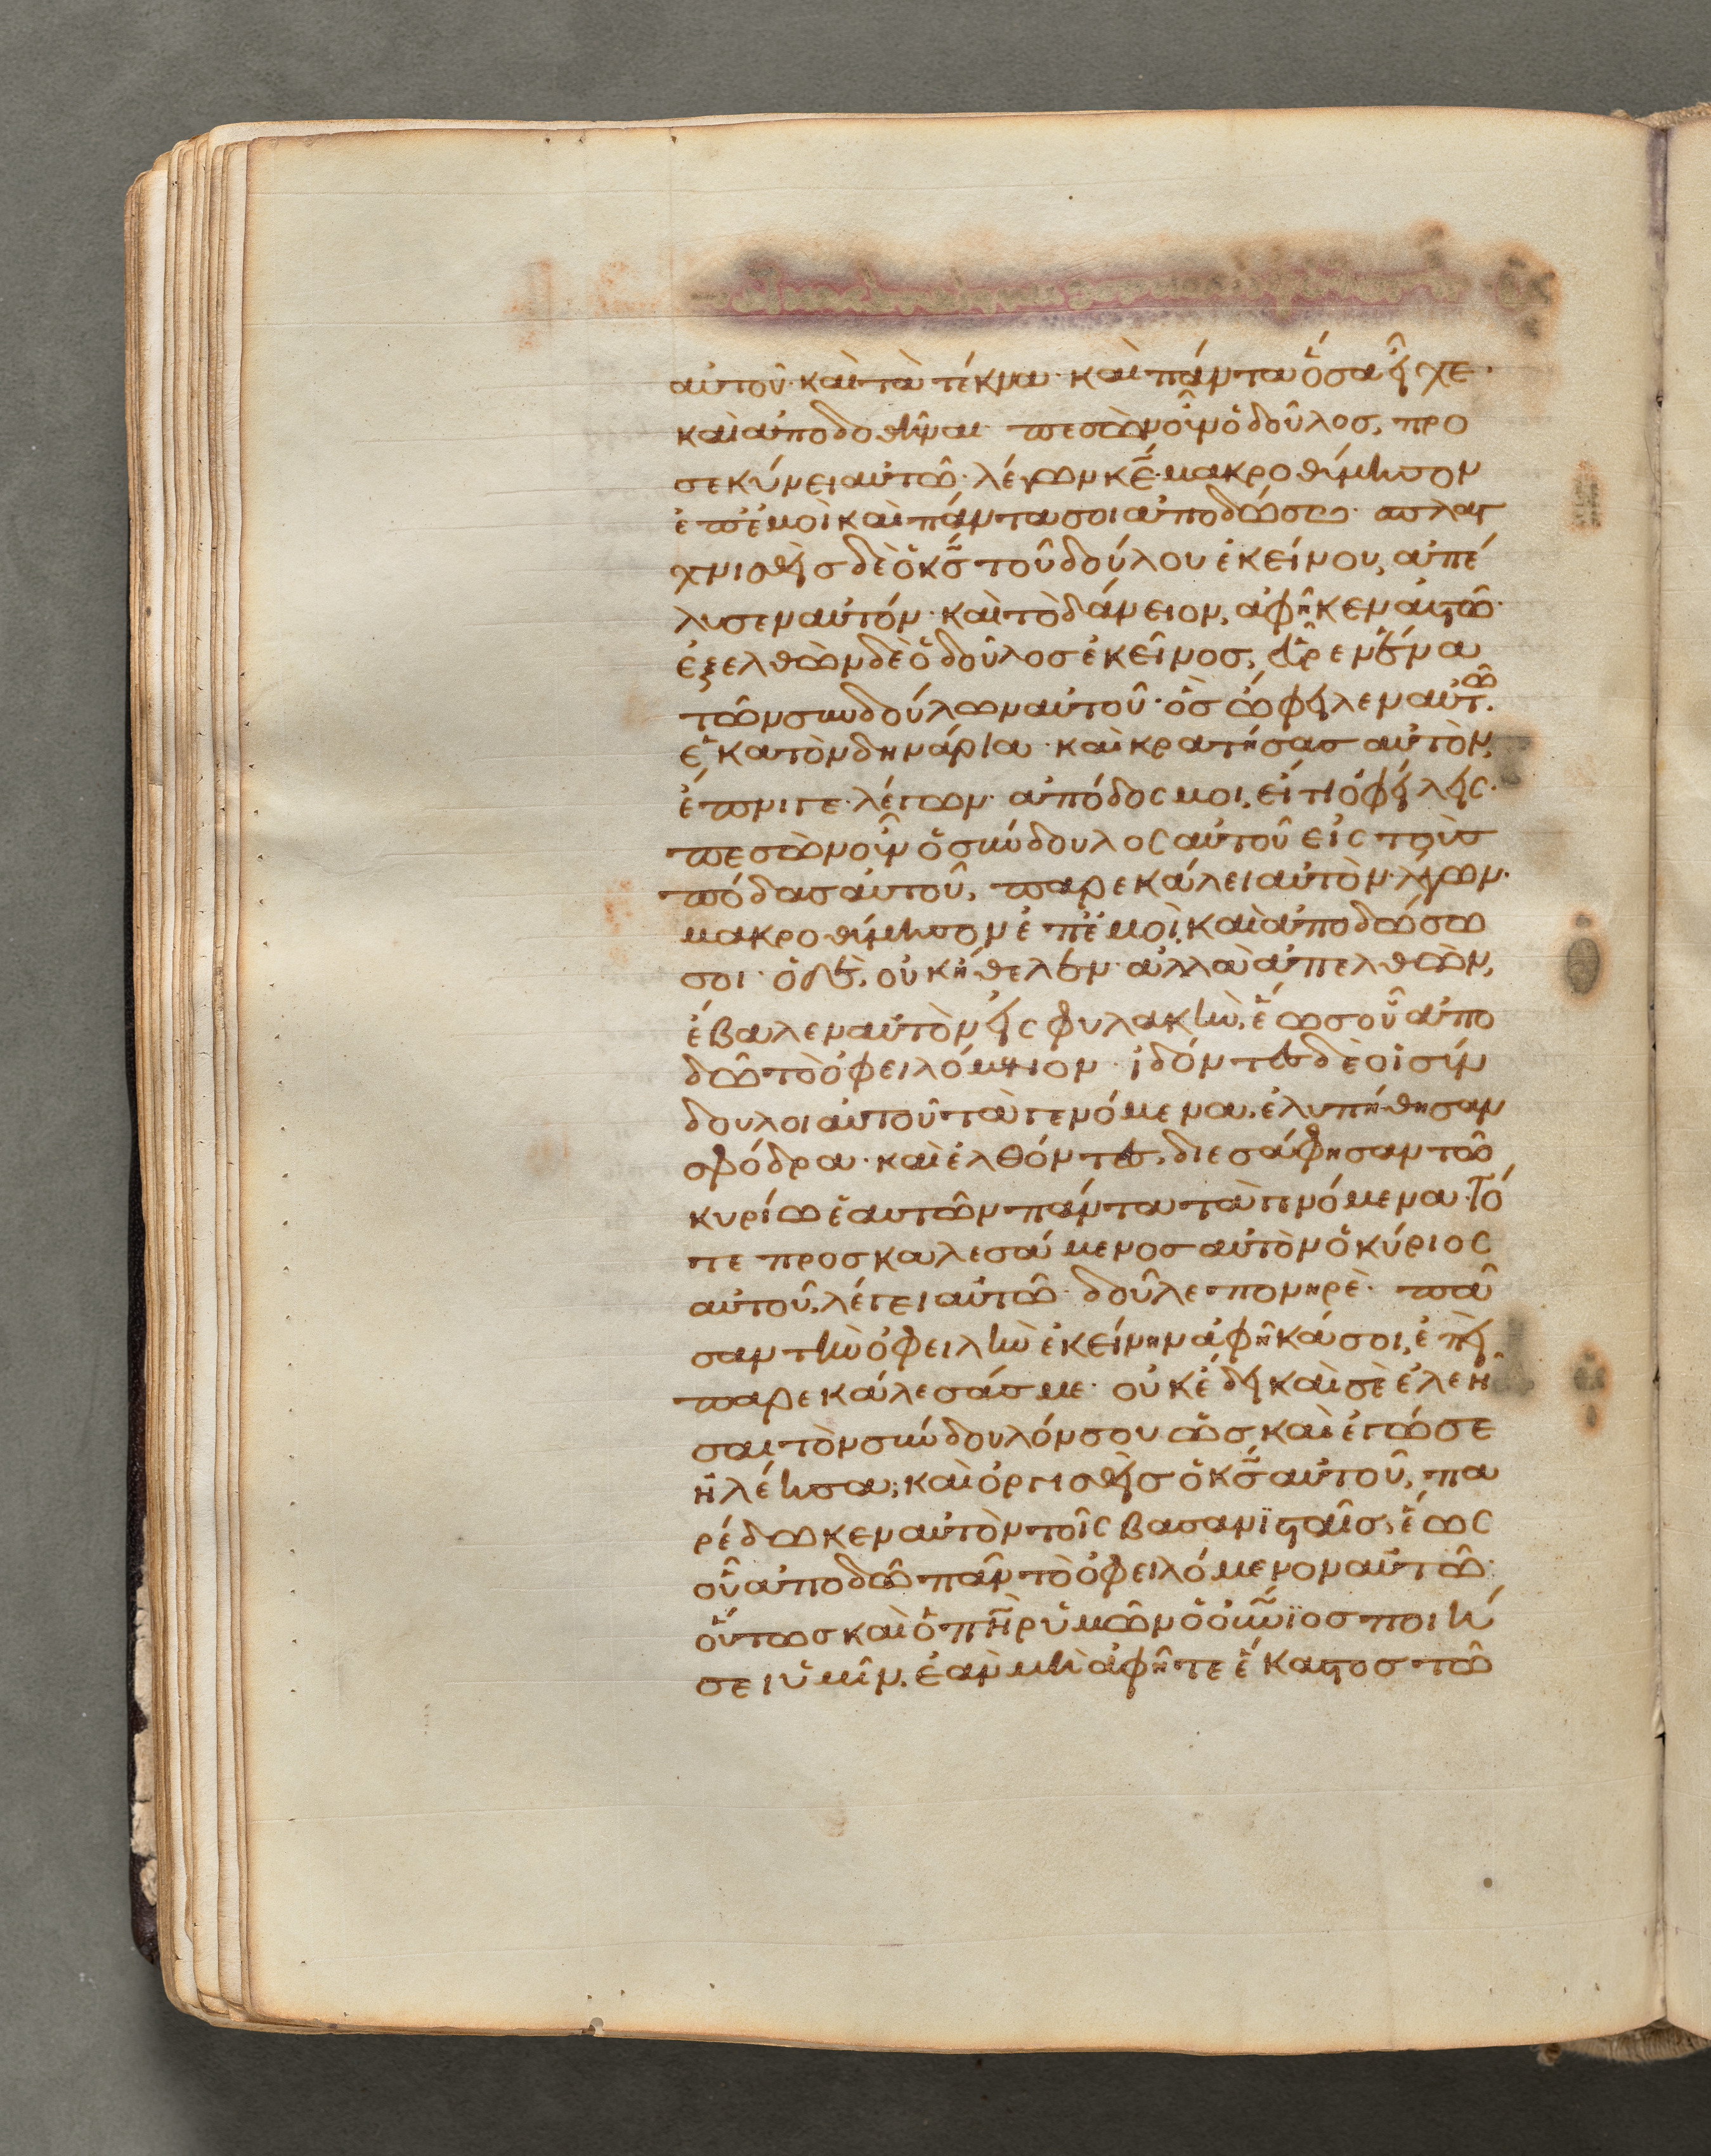 αὐτοῦ· καὶ τὰ τέκνα· καὶ πάντα ὅσα εἶχε·
καὶ ἀποδοθῆναι· πεσὼν οὖν ὁ δοῦλος, προ
σεκύνει αὐτῶ· λέγων κε̅· μακροθύμησον
ἐπ' ἐμοὶ καὶ πάντα σοι ἀποδώσω· σπλαγ
χνισθεὶς δὲ ὁ κσ̅ τοῦ δούλου ἐκείνου, ἀπέ
λυσεν αὐτόν· καὶ τὸ δάνειον, ἀφῆκεν αὐτῶ·
ἐξελθὼν δὲ ὁ δοῦλος ἐκεῖνος, εὗρεν ἕνα
τῶν συνδούλων αὐτοῦ· ὃς ὤφειλεν αὐτῶ.
ἑκατὸν δηνάρια· καὶ κρατήσας αὐτὸν,
ἔπνιγε· λέγων· ἀπόδος μοι, εἴ τι ὀφείλεις·
πεσὼν οὖν ὁ σύνδουλος αὐτοῦ εἰς τοὺς
πόδας αὐτοῦ, παρεκάλει αὐτὸν λέγων·
μακροθύμησον ἐπ' ἐμοὶ, καὶ ἀποδώσω
σοι· ὁ δὲ, οὐκ ἤθελεν· ἀλλὰ ἀπελθὼν,
ἔβαλεν αὐτὸν εἰς φυλακὴν, ἕως οὗ ἀπο
δῶ τὸ ὀφειλόμενον· ἰδόντες δὲ οἱ σύν
δουλοι αὐτοῦ τὰ γενόμενα, ἐλυπήθησαν
σφόδρα· καὶ ἐλθόντες, διεσάφησαν τῶ
κυρίω ἑαυτῶν πάντα τὰ γενόμενα· Τό
τε προσκαλεσάμενος αὐτὸν ὁ κύριος
αὐτοῦ, λέγει αὐτῶ· δοῦλε πονηρὲ· πᾶ
σαν τὴν ὀφειλὴν ἐκείνην ἀφῆκά σοι, ἐπεὶ
παρεκάλεσάς με· οὐκ ἔδει καὶ σὲ ἐλεῆ
σαι τὸν σύνδουλόν σου ὡς καὶ ἐγώ σε
ἠλέησα; καὶ ὀργισθεὶς ὁ κσ̅ αὐτοῦ, πα
ρέδωκεν αὐτὸν τοῖς βασανϊσταῖς, ἕως
οὗ ἀποδῶ πᾶν τὸ ὀφειλόμενον αὐτῶ·
οὕτως καὶ ὁ πη̅ρ ὑμῶν ὁ οὐ̅νϊος ποιή
σει ὑμῖν, ἐὰν μὴ ἀφῆτε ἕκαστος τῶ